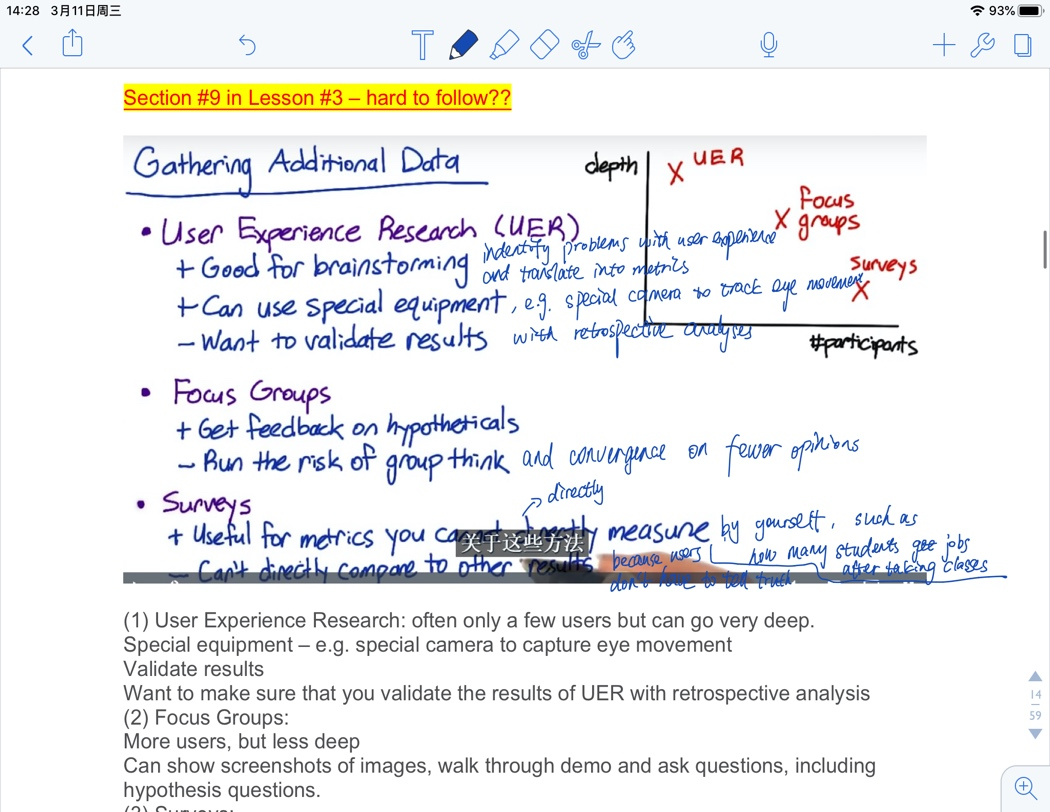 14:28 3月11日周三
93%
Section #9 in Lesson #3 – hard to follow??
Gathering Additional Data
depth
X UER
X Focus groups
Surveys
X
#participants
• User Experience Research (UER)
indentify problems with user experience
+ Good for brainstorming
and translate into metrics
+ Can use special equipment, e.g. special camera to track eye movement
- Want to validate results with retrospective analyses
• Focus Groups
+ Get feedback on hypotheticals
- Run the risk of group think and convergence on fewer opinions
• Surveys
→ directly
+ Useful for metrics you cannot directly measure by yourself, such as
how many students get jobs
after taking classes
关于这些方法
- Can't directly compare to other results
because users
don't have to tell truth
(1) User Experience Research: often only a few users but can go very deep.
Special equipment – e.g. special camera to capture eye movement
Validate results
Want to make sure that you validate the results of UER with retrospective analysis
(2) Focus Groups:
More users, but less deep
Can show screenshots of images, walk through demo and ask questions, including
hypothesis questions.
(3) Surveys:
14
59